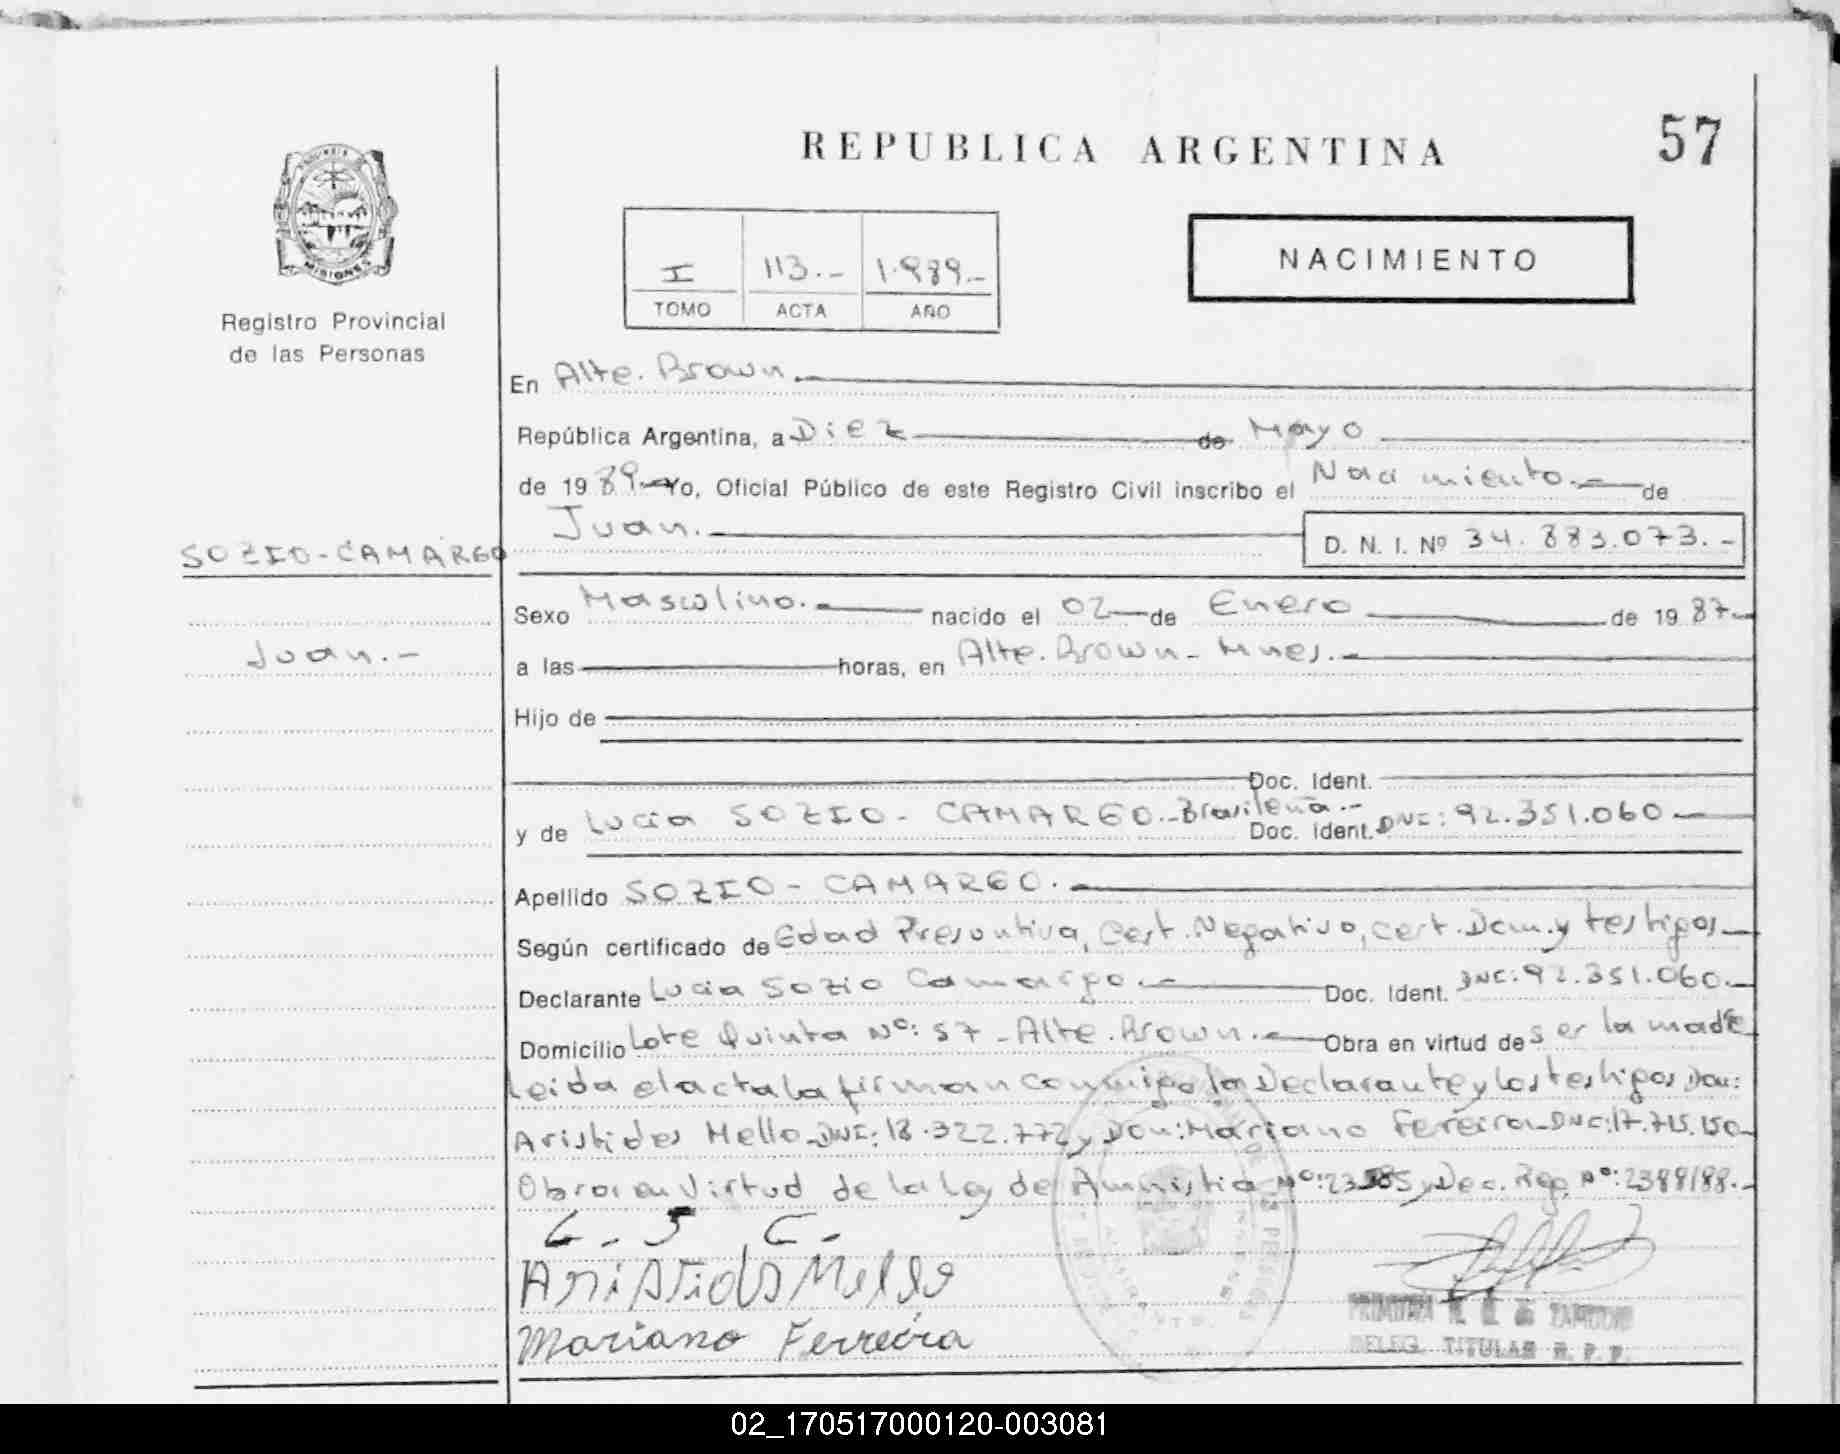 REPUBLICA ARGENTINA
57
MISIONES
Registro Provincial
de las Personas
I 113.- 1.989.-
TOMO ACTA AÑO
NACIMIENTO
En Alte. Brown.
República Argentina, a Diez de Mayo
de 1989 Yo, Oficial Público de este Registro Civil inscribo el Nacimiento.- de
Juan.
D. N. I. Nº 34.883.073.-
SOZIO-CAMARGO
Juan.-
Sexo Masculino. nacido el 02 de Enero de 1987
a las horas, en Alte. Brown - Mnes.
Hijo de
Doc. Ident.
y de Lucia SOZIO - CAMARGO.-Brasileña.- Doc. Ident. DNI: 92.351.060
Apellido SOZIO - CAMARGO.
Según certificado de Edad Presuntiva, Cert. Negativo, cert. Dom. y testigos
Declarante Lucia Sozio Camargo. Doc. Ident. DNI: 92.351.060.
Domicilio Lote Quinta Nº: 57 - Alte. Brown. Obra en virtud de ser la madre
Leida el acta la firman conmigo la Declarante y los testigos Don:
Aristides Mello DNI: 18.322.772 y Don: Mariano Fereira DNI: 17.715.150
Obra en Virtud de la Ley de Amnistia Nº: y Dec. Reg. Nº: 2389/88.-
L. S. C.
Aristides Mello
Mariano Ferreira
DELEG. TITULAR R. P. P.
02_170517000120-003081